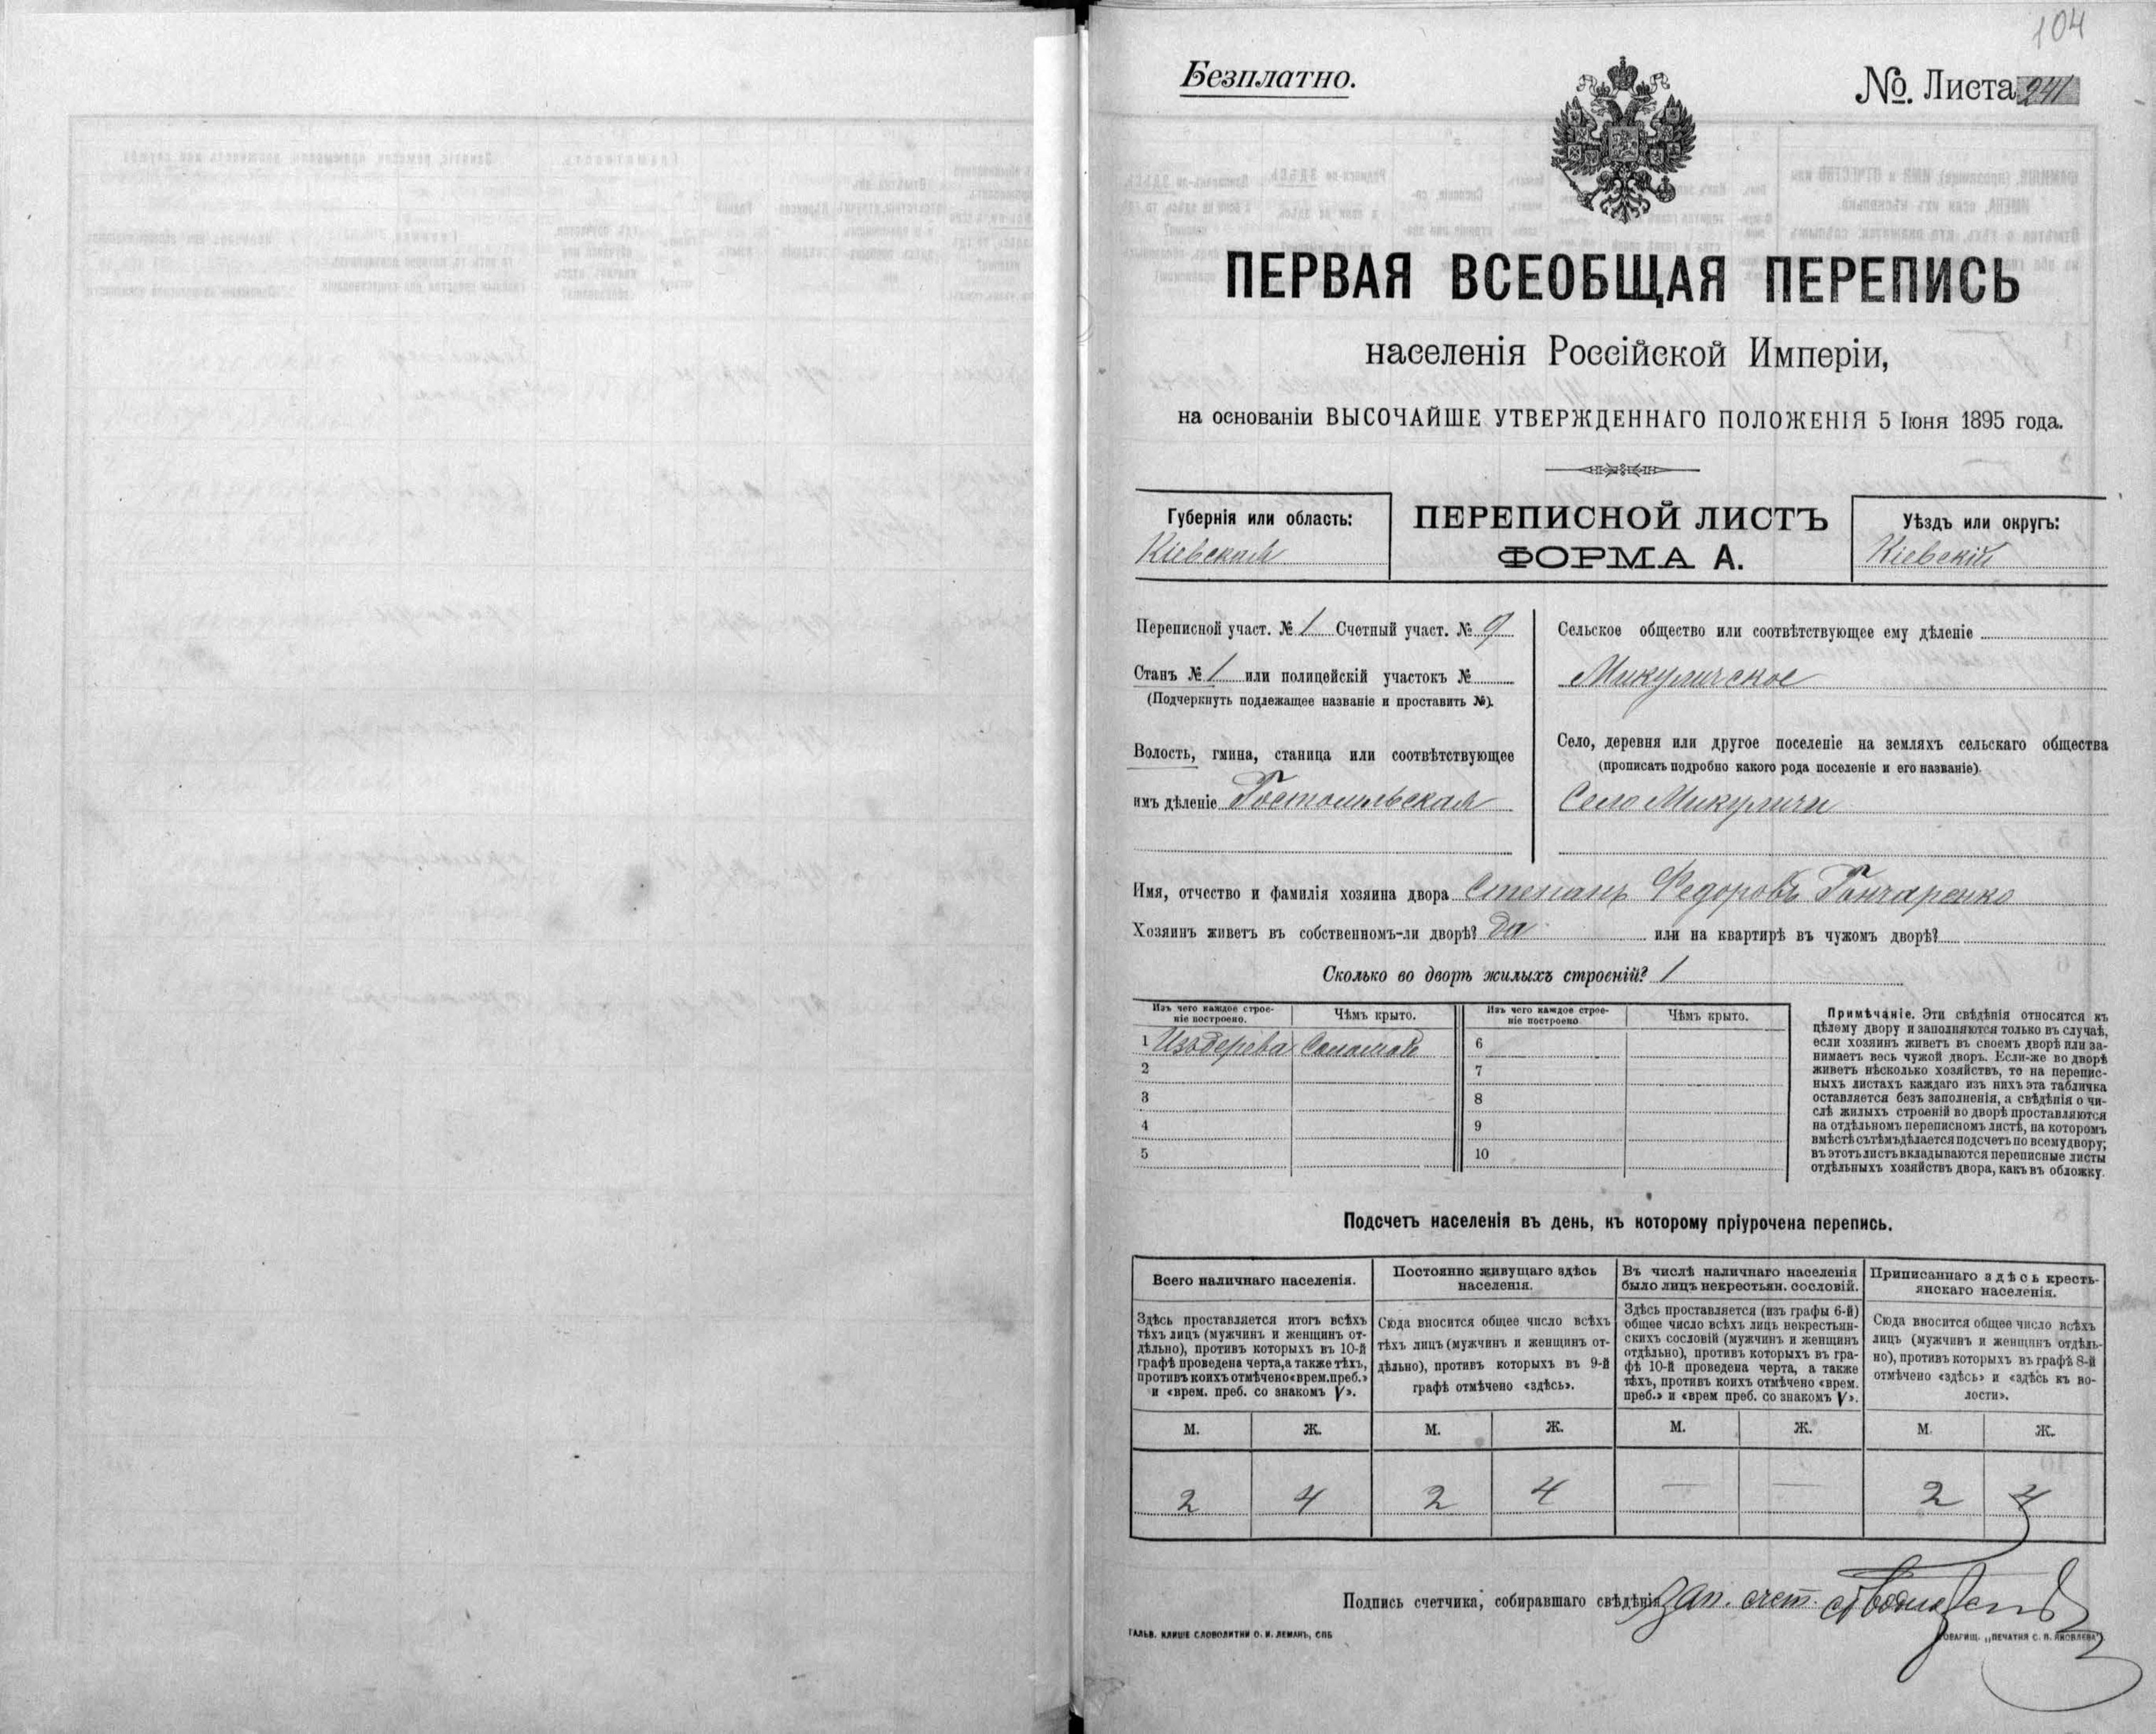 104
Безплатно.
№. Листа 241
ПЕРВАЯ ВСЕОБЩАЯ ПЕРЕПИСЬ
населенія Россійской Имперіи,
на основаніи ВЫСОЧАЙШЕ УТВЕРЖДЕННАГО ПОЛОЖЕНІЯ 5 Іюня 1895 года.
Губернія или область:
Кіевская
ПЕРЕПИСНОЙ ЛИСТЪ
ФОРМА А.
Уѣздъ или округъ:
Кіевскій
Переписной участ. № 1 Счетный участ. № 9
Станъ № 1 или полицейскій участокъ №
(Подчеркнуть подлежащее названіе и проставить №).
Волость, гмина, станица или соотвѣтствующее
имъ дѣленіе Гостомльская
Сельское общество или соотвѣтствующее ему дѣленіе
Микуличское
Село, деревня или другое поселеніе на земляхъ сельскаго общества
(прописать подробно какого рода поселеніе и его названіе).
Село Микуличи
Имя, отчество и фамилія хозяина двора Степанъ Федоровъ Гончаренко
Хозяинъ живетъ въ собственномъ-ли дворѣ? да или на квартирѣ въ чужомъ дворѣ?
Сколько во дворѣ жилыхъ строеній? 1
Изъ чего каждое строе-
ніе построено.
Чѣмъ крыто.
Изъ чего каждое строе-
ніе построено
Чѣмъ крыто.
1 Изъ дерева Соломой
6
2
7
3
8
4
9
5
10
Примѣчаніе. Эти свѣдѣнія относятся къ
цѣлому двору и заполняются только въ случаѣ,
если хозяинъ живетъ въ своемъ дворѣ или за-
нимаетъ весь чужой дворъ. Если-же во дворѣ
живетъ нѣсколько хозяйствъ, то на перепис-
ныхъ листахъ каждаго изъ нихъ эта табличка
оставляется безъ заполненія, а свѣдѣнія о чи-
слѣ жилыхъ строеній во дворѣ проставляются
на отдѣльномъ переписномъ листѣ, на которомъ
вмѣстѣ съ тѣмъ дѣлается подсчетъ по всему двору;
въ этотъ листъ вкладываются переписные листы
отдѣльныхъ хозяйствъ двора, какъ въ обложку.
Подсчетъ населенія въ день, къ которому пріурочена перепись.
Всего наличнаго населенія.
Здѣсь проставляется итогъ всѣхъ
тѣхъ лицъ (мужчинъ и женщинъ от-
дѣльно), противъ которыхъ въ 10-й
графѣ проведена черта, а также тѣхъ,
противъ коихъ отмѣчено «врем. преб.»
и «врем. преб. со знакомъ V».
Постоянно живущаго здѣсь
населенія.
Сюда вносится общее число всѣхъ
тѣхъ лицъ (мужчинъ и женщинъ от-
дѣльно), противъ которыхъ въ 9-й
графѣ отмѣчено «здѣсь».
Въ числѣ наличнаго населенія
было лицъ некрестьян. сословій.
Здѣсь проставляется (изъ графы 6-й)
общее число всѣхъ лицъ некрестьян-
скихъ сословій (мужчинъ и женщинъ
отдѣльно), противъ которыхъ въ гра-
фѣ 10-й проведена черта, а также
тѣхъ, противъ коихъ отмѣчено «врем.
преб.» и «врем преб. со знакомъ V».
Приписаннаго здѣсь кресть-
янскаго населенія.
Сюда вносится общее число всѣхъ
лицъ (мужчинъ и женщинъ отдѣль-
но), противъ которыхъ въ графѣ 8-й
отмѣчено «здѣсь» и «здѣсь къ во-
лости».
М. Ж. М. Ж. М. Ж. М. Ж.
2 4 2 4 — — 2 4
Подпись счетчика, собиравшаго свѣдѣнія зап. счет.
ГАЛЬВ. КЛИШЕ СЛОВОЛИТНИ О. И. ЛЕМАНЪ, СПБ
ТОВАРИЩ. „ПЕЧАТНЯ С. П. ЯКОВЛЕВА"